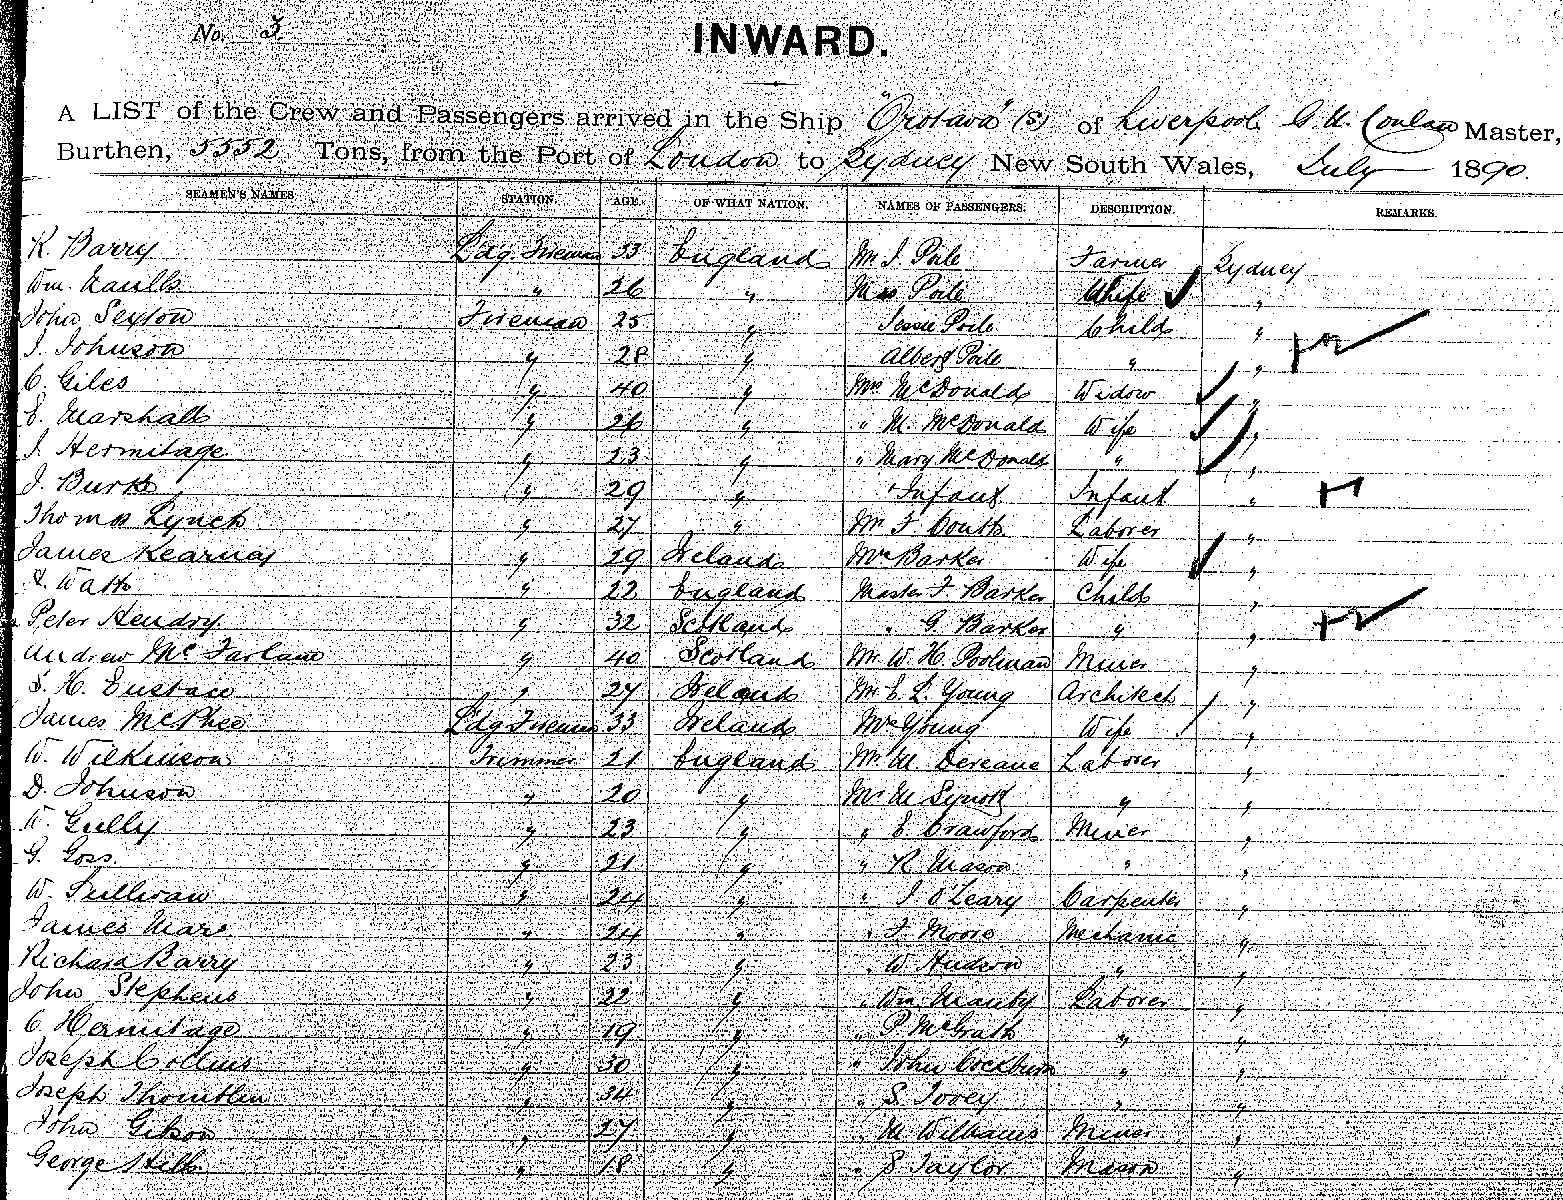 No. 3
INWARD.
A LIST of the Crew and Passengers arrived in the Ship "Orotava" (s) of Liverpool, G. N. Master,
Burthen, 5552 Tons, from the Port of London to Sydney New South Wales, July 1890.
SEAMEN'S NAMES STATION. AGE. OF WHAT NATION. NAMES OF PASSENGERS. DESCRIPTION. REMARKS.
R. Barry Ldg. Fireman 33 England Mr J. Poile Farmer Sydney
Wm. " 26 " Mrs Poile Wife "
John Sexton Fireman 25 " Jessie Poile Child "
J. Johnson " 28 " Albert Poile " "
C. Giles " 40 " Mrs McDonald Widow "
E. Marshall " 26 " " M. McDonald Wife "
J. Hermitage " 23 " " Mary McDonald " "
J. Burke " 29 " " Infant Infant "
Thomas Lynch " 27 " Mr F. Coutts Laborer "
James Kearney " 29 Ireland Mrs Barker Wife "
A. Watt " 22 England Master F. Barker Child "
Peter Hendry " 32 Scotland " G. Barker " "
Andrew McFarlane " 40 Scotland Mr W. H. Poolman Miner "
S. H. Eustace " 27 Ireland Mr E. L. Young Architect "
James McPhee Ldg Fireman 33 Ireland Mrs Young Wife "
W. Wilkinson Trimmer 21 England Mr M. Laborer "
D. Johnson " 20 " Mr M " "
W. Gully " 23 " " E. Crawford Miner "
G. Goss. " 21 " " R. Mason " "
W. Sullivan " 24 " " J. O'Leary Carpenter "
James " 24 " " F. Moore Mechanic "
Richard Barry " 23 " " W. Hudson " "
John Stephens " 22 " " Wm Manby Laborer "
C. Hermitage " 19 " " P. McGrath " "
Joseph Collins " 30 " " John Cockburn " "
Joseph " 34 " " S. Tovey " "
John Gibson " 27 " " M. Williams Miner "
George Hill " 18 " " S. Taylor Mason "